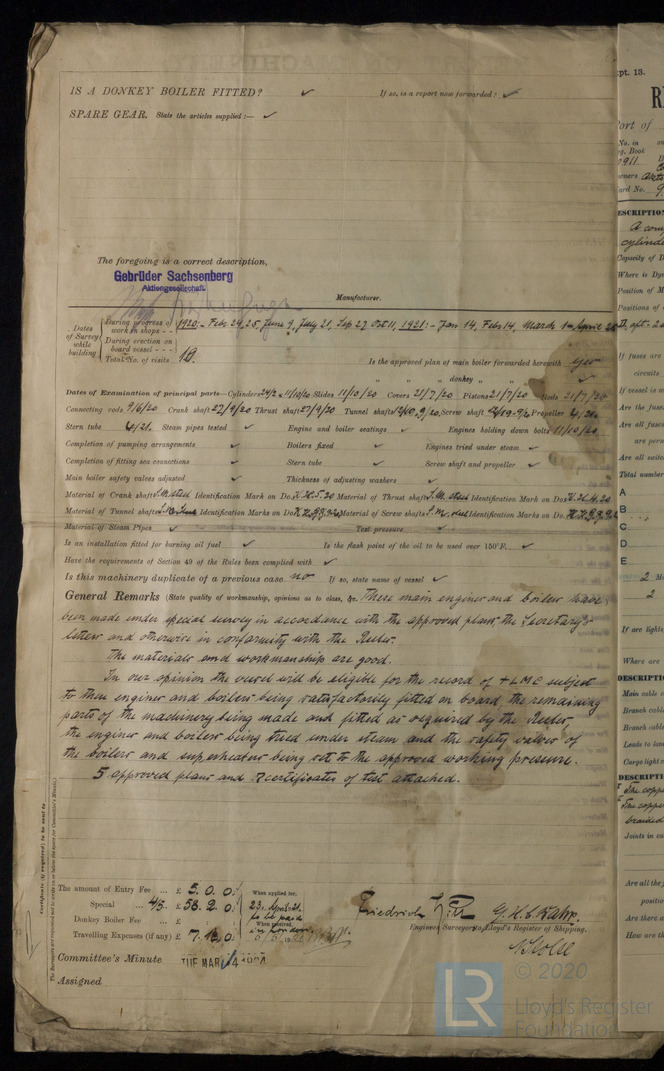 IS A DONKEY BOILER FITTED? ✓ If so, is a report now forwarded? ✓
SPARE GEAR. State the articles supplied:— ✓
The foregoing is a correct description,
Gebrüder Sachsenberg
Aktiengesellschaft.
Manufacturer.
Dates of Survey while building
During progress of work in shops - - 1920:- Feb 24, 25, June 9, July 21, Sep 27, Oct 11, 1921:- Jan 14, Feb 14, March 1
During erection on board vessel - - -
Total No. of visits
Is the approved plan of main boiler forwarded herewith yes
" " " donkey " " " ✓
Dates of Examination of principal parts—Cylinders Slides 11/10/20 Covers 21/7/20 Pistons 21/7/20 Rods 21/7/20
Connecting rods 9/6/20 Crank shaft 27/9/20 Thrust shaft 27/9/20 Tunnel shafts Screw shaft Propeller
Stern tube Steam pipes tested ✓ Engine and boiler seatings ✓ Engines holding down bolts 11/10/20
Completion of pumping arrangements ✓ Boilers fixed ✓ Engines tried under steam ✓
Completion of fitting sea connections ✓ Stern tube ✓ Screw shaft and propeller ✓
Main boiler safety valves adjusted ✓ Thickness of adjusting washers ✓
Material of Crank shaft S.M. steel Identification Mark on Do. Material of Thrust shaft S.M. steel Identification Mark on Do.
Material of Tunnel shafts S.M. steel Identification Marks on Do. Material of Screw shafts S.M. steel Identification Marks on Do.
Material of Steam Pipes ✓ Test pressure ✓
Is an installation fitted for burning oil fuel ✓ Is the flash point of the oil to be used over 150°F. ✓
Have the requirements of Section 49 of the Rules been complied with ✓
Is this machinery duplicate of a previous case no If so, state name of vessel ✓
General Remarks (State quality of workmanship, opinions as to class, &c. These main engines and boilers have
been made under special survey in accordance with the approved plans, the Secretary's
letters and otherwise in conformity with the Rules.
The materials and workmanship are good.
In our opinion the vessel will be eligible for the record of + LMC subject
to these engines and boilers being satisfactorily fitted on board, the remaining
parts of the machinery being made and fitted as required by the Rules,
the engines and boilers being tried under steam and the safety valves of
the boilers and superheaters being set to the approved working pressure.
5 approved plans and 7 certificates of test attached.
Certificate (if required) to be sent to
The amount of Entry Fee ... £ 5. 0. 0. When applied for,
Special ... 4/5 £ 58. 2. 0. 23. April 21.
Donkey Boiler Fee ... £ to be paid When received,
Travelling Expenses (if any) £ in London.
Friedrich G.H.C. Kahr.
Engineer Surveyor to Lloyd's Register of Shipping.
Committee's Minute TUE MAR 4 1924
Assigned
© 2020
LR Lloyd's Register
Foundation
pt. 13.
Port of
No. in
Reg. Book
DESCRIPTION
A comp
cylinde
Capacity of D
Where is Dy
Position of M
Positions of
If fuses are
circuits
If vessel is w
Are the fuse
Are all fuses
are perm
Are all switc
Total number
A
B
C
D
E
2
2
If are lights
Where are
DESCRIPTI
Main cable
Branch cabl
Branch cable
Leads to lam
Cargo light c
DESCRIPTI
The coppe
The coppe
braided
Joints in ca
Are all the j
positio
Are there a
How are th